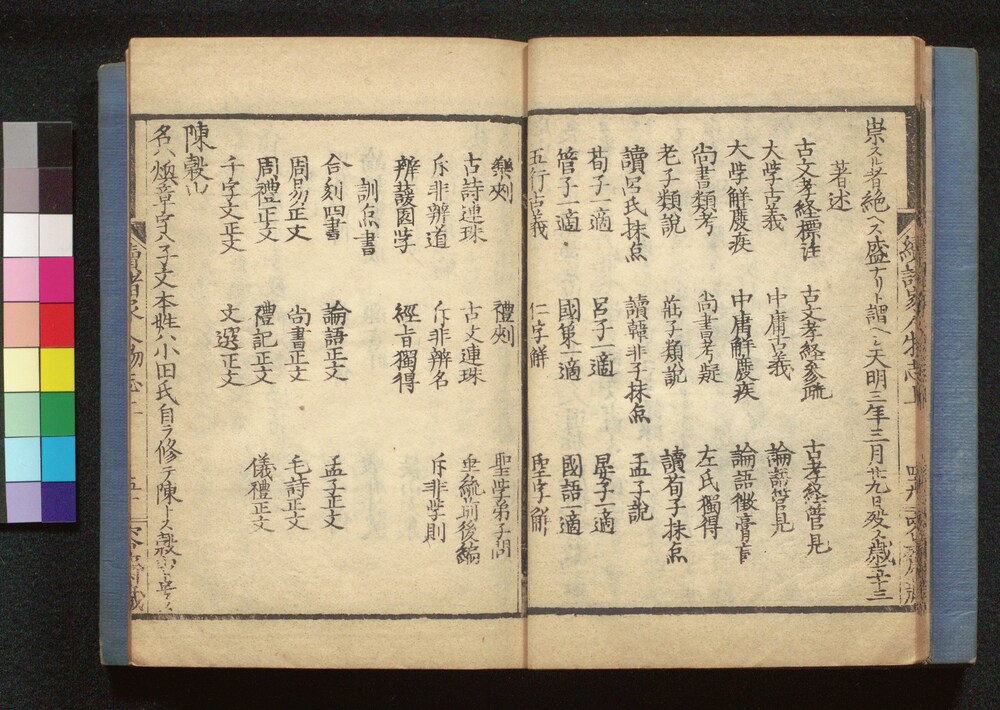 崇スル者絶ヘス盛ナリト謂ヘシ天明三年三月廿九日歿ス歳五十三
著述
古文孝経標註 古文孝経参疏 古孝経管見
大学古義 中庸古義 論語管見
大学解廢疾 中庸解廢疾 論語徴膏盲
尚書類考 尚書考疑 左氏獨得
老子類說 莊子類說 讀荀子抹点
讀呂氏抹点 讀韓非子抹点 孟子說
荀子一適 呂子一適 晏子一適
管子一適 國策一適 國語一適
五行古義 仁字解 聖字解
樂則 禮則 聖学弟子問
古詩連珠 古文連珠 垂統前後編
斥非辨道 斥非辨名 斥非学則
辨蘐園学 經旨獨得
訓点書
合刻四書 論語正文 孟子正文
周易正文 尚書正文 毛詩正文
周禮正文 禮記正文 儀禮正文
千字文正文 文選正文
陳穀山
名ハ煥章字ハ子文本姓ハ小田氏自ラ修テ陳トス穀山
續諸家人物志